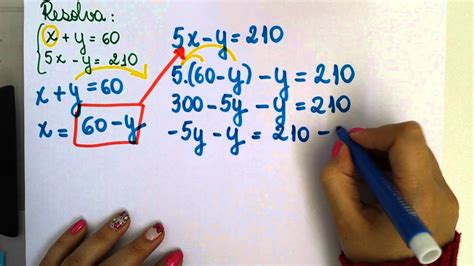 Resolva:
x + y = 60
5x - y = 210
x + y = 60
x = 60 - y
5x - y = 210
5.(60-y) - y = 210
300 - 5y - y = 210
-5y - y = 210 -